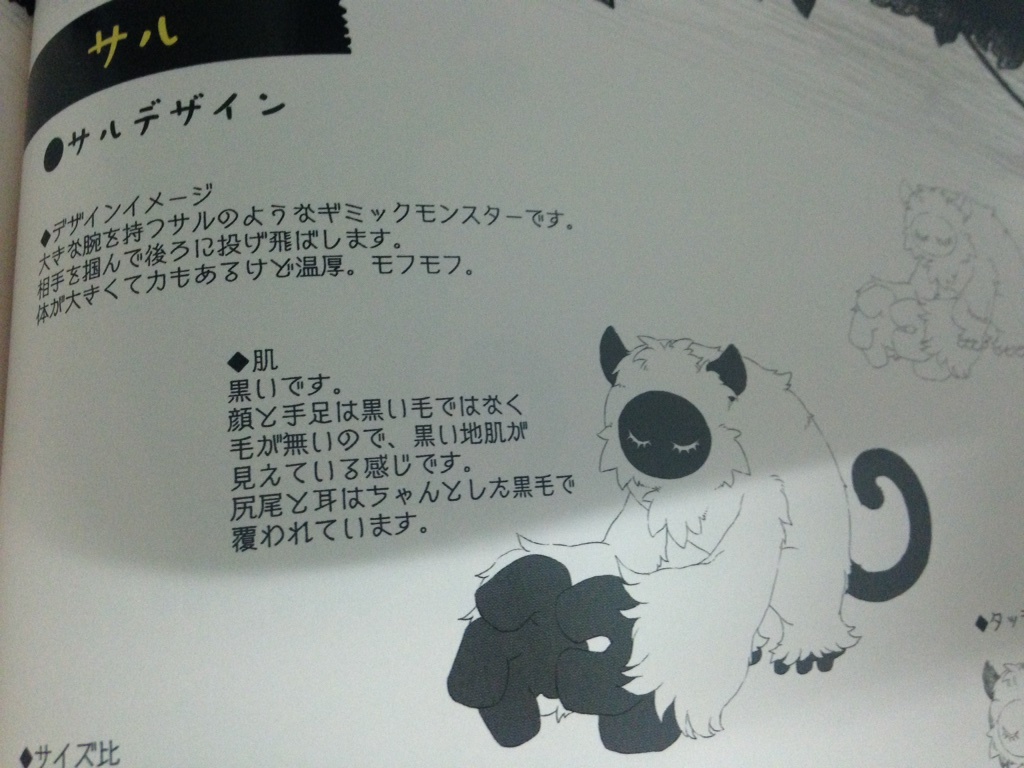 サル
●サルデザイン
◆デザインイメージ
大きな腕を持つサルのようなギミックモンスターです。
相手を掴んで後ろに投げ飛ばします。
体が大きくて力もあるけど温厚。モフモフ。
◆肌
黒いです。
顔と手足は黒い毛ではなく
毛が無いので、黒い地肌が
見えている感じです。
尻尾と耳はちゃんとした黒毛で
覆われています。
◆タッ
◆サイズ比